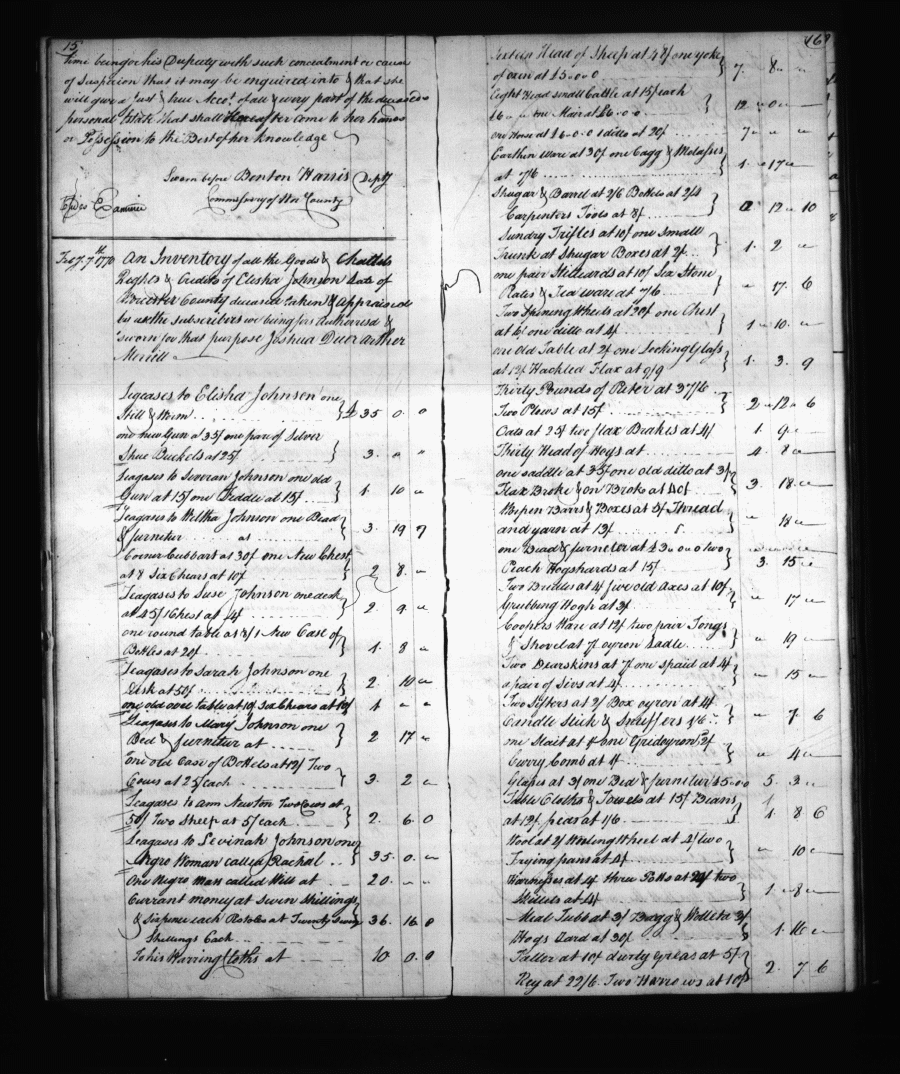 15
time being or his Deputy with such concealment or cause
of Suspicion that it may be enquired into & that she
will give a Just & true Acct. of all & every part of the deceased
personal Estate that shall hereafter come to her hands
or Possession to the Best of her knowledge
Sworn before Benton Harris Depty
Commissary of Wor County
Examine
Feby 7th 1770 An Inventory of all the Goods & Chattels
Rights & Credits of Elisha Johnson Late of
Worcester County deceased taken & appraised
by us the subscribers we being first Authorised &
sworn for that purpose Joshua Duer Arther
Merrill
Legases to Elisha Johnson one
Still & Worm £35 0 0
one new Gun at 35/ one pare of Silver
Shue Buckels at 25/ 3. " "
Leagases to Johnson one old
Gun at 15/ one Fiddle at 15/ 1. 10 "
Leagases to Wiltha Johnson one Bead
& furniter as 3. 19 7
Corner Cubbart at 30/ one New Chest
at 8 Six Chears at 10/ 2 8. "
Leagases to Suse Johnson one desk
at 45/ 1 Chest at 4/ 2. 9 "
one round table at 8/ 1 New Case of
Bottles at 20/ 1. 8 "
Leagases to Sarah Johnson one
Desk at 50/ 2. 10 "
one old ovel table at 10/ Six Chears at 10/ 1 " "
Leagases to Mary Johnson one
Bed & furnitur at 2 17 "
one old Case of Bottels at 12/ Two
Cows at 25/ each 3. 2 "
Leagases to Ann Newton Two Cows at
50/ Two Sheep at 5/ each 2. 6. 0
Leagases to Levinah Johnson one
Negro Woman called Rachal 35. 0. "
One Negro man called Will at 20. " "
Currant money at Seven Shillings
& Sixpence each Pistoles at Twenty Seven 36. 16 8
Shillings Each
To his Warring Cloths at 10. 0. 0
168
Sixteen Head of Sheep at 4/ one yoke
of oxen at £5 0 0 7. 8. "
Eight Head small Cattle at 15/ each
£6 " " one Mair at £6 0 0 12 " 0 "
one Horse at £6 0 0 1 ditto at 20/ 7 " "
Earthin Ware at 30/ one Cagg & Molasses
at 7/6 1. " 17 "
Shugar & Barrel at 2/6 Bottels at 2/4
Carpenters Tools at 8/ " 12 " 10
Sundry Trifles at 10/ one small
Trunk at Shugar Boxes at 2/ 1. 2 "
one pair Stilliards at 10/ Six Stone
Plates & Tea ware at 7/6 " 17. 6
Two Spinning Wheels at 20/ one Chest
at 6/ one ditto at 4/ 1 " 10. "
one old Table at 2/ one Looking Glass
at 12/ Hackled Flax at 9/9 1. 3. 9
Thirty Pounds of Puter at 37/6
Two Plows at 15/ 2 " 12 " 6
Oats at 25/ two flax Brakes at 4/ 1 9 "
Thirty Head of Hogs at 4. 8 "
one saddle at 35/ one old ditto at 3/
Flax Broke & on Broke at 40/ 3. 18. "
Weepen Barrs & Boxes at 5/ Thread
and yarn at 13/ " 18 "
one Bead & furneter at £3 0 0 two
Peach Hogshards at 15/ 3. 15 "
Two Bridles at 4/ five old Axes at 10/
Grubbing Hogh at 3/ " 17 "
Coopers Ware at 12/ two pair Tongs
& Shovel at 7/ oyron Ladle " 19 "
Two Dearskins at 7/ one spaid at 4/
a pair of Sivs at 4/ " 15 "
Two Sifters at 2/ Box oyron at 4/
Candle Stick & Snuffers 1/6 " 7 6
one Slait at 1/ one Gridoyron 2/
Curry Comb at 1/ " 4 "
Glases at 3/ one Bed & furneter £5 0 0 5. 3 "
Table Cloths & Towels at 15/ Beans
at 12/ peas at 1/6 1 8 6
Wool at 2/ Winling Wheel at 4/ two
Frying pans at 4/ " 10 "
Harnesses at 4/ three Potts at 20/ two
Skillets at 4/ 1. " 8 "
Meal Tubs at 3/ Bagg & Wallets 3/
Hogs Lard at 30/ 1. 16 "
Taller at 10/ durty Greas at 5/
Rey at 22/6 Two Harrows at 10/ 2. 7 6